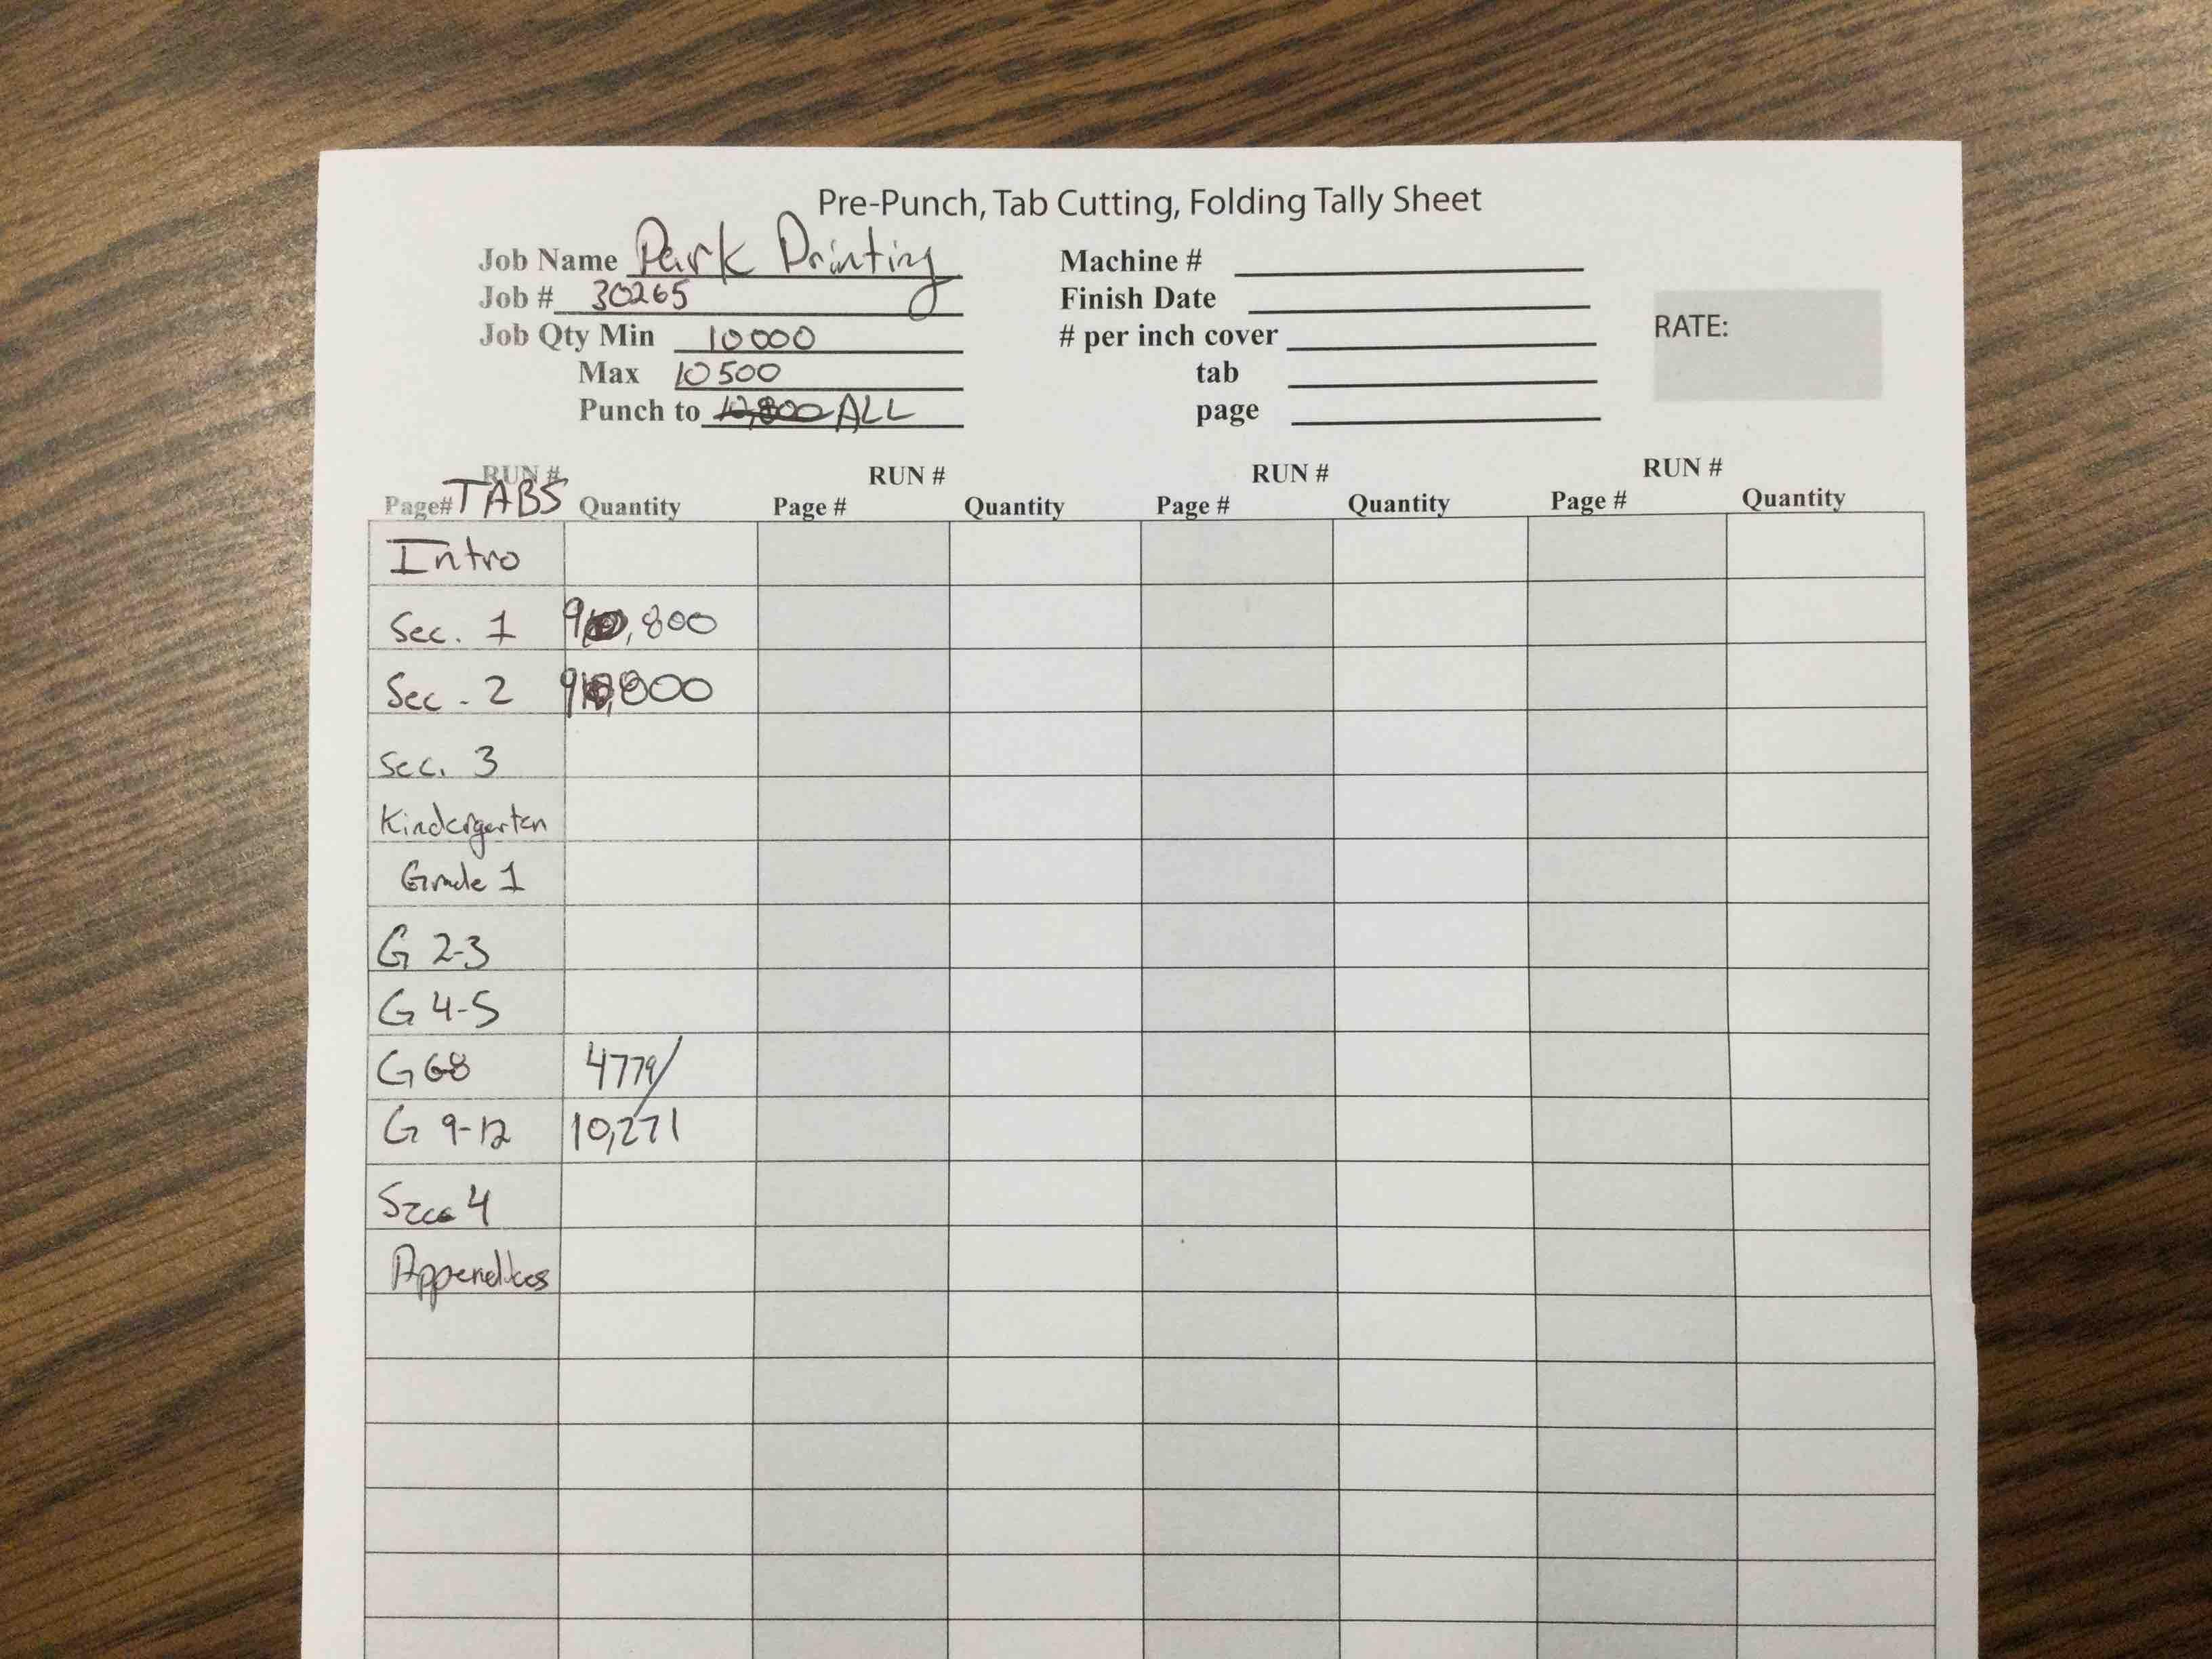 Pre-Punch, Tab Cutting, Folding Tally Sheet
Job Name Park Printing
Machine #
Job # 30265
Finish Date
Job Qty Min 10000
# per inch cover
RATE:
Max 10500
tab
Punch to 12,800 ALL
page
RUN # RUN # RUN # RUN #
Page# TABS Quantity Page # Quantity Page # Quantity Page # Quantity
Intro
Sec. 1 9,800
Sec. 2
Sec. 3
Kindergarten
Grade 1
G 2-3
G 4-5
G 68 4779/
G 9-12 10,271
4
Appendices